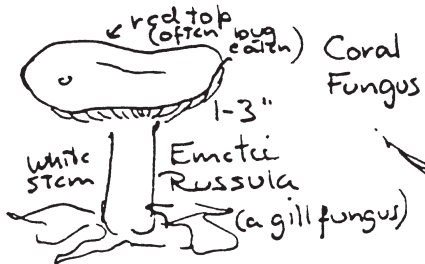 red top
(often bug
eaten)
Coral
Fungus
1-3"
white
stem
Emetic
Russula
(a gill fungus)